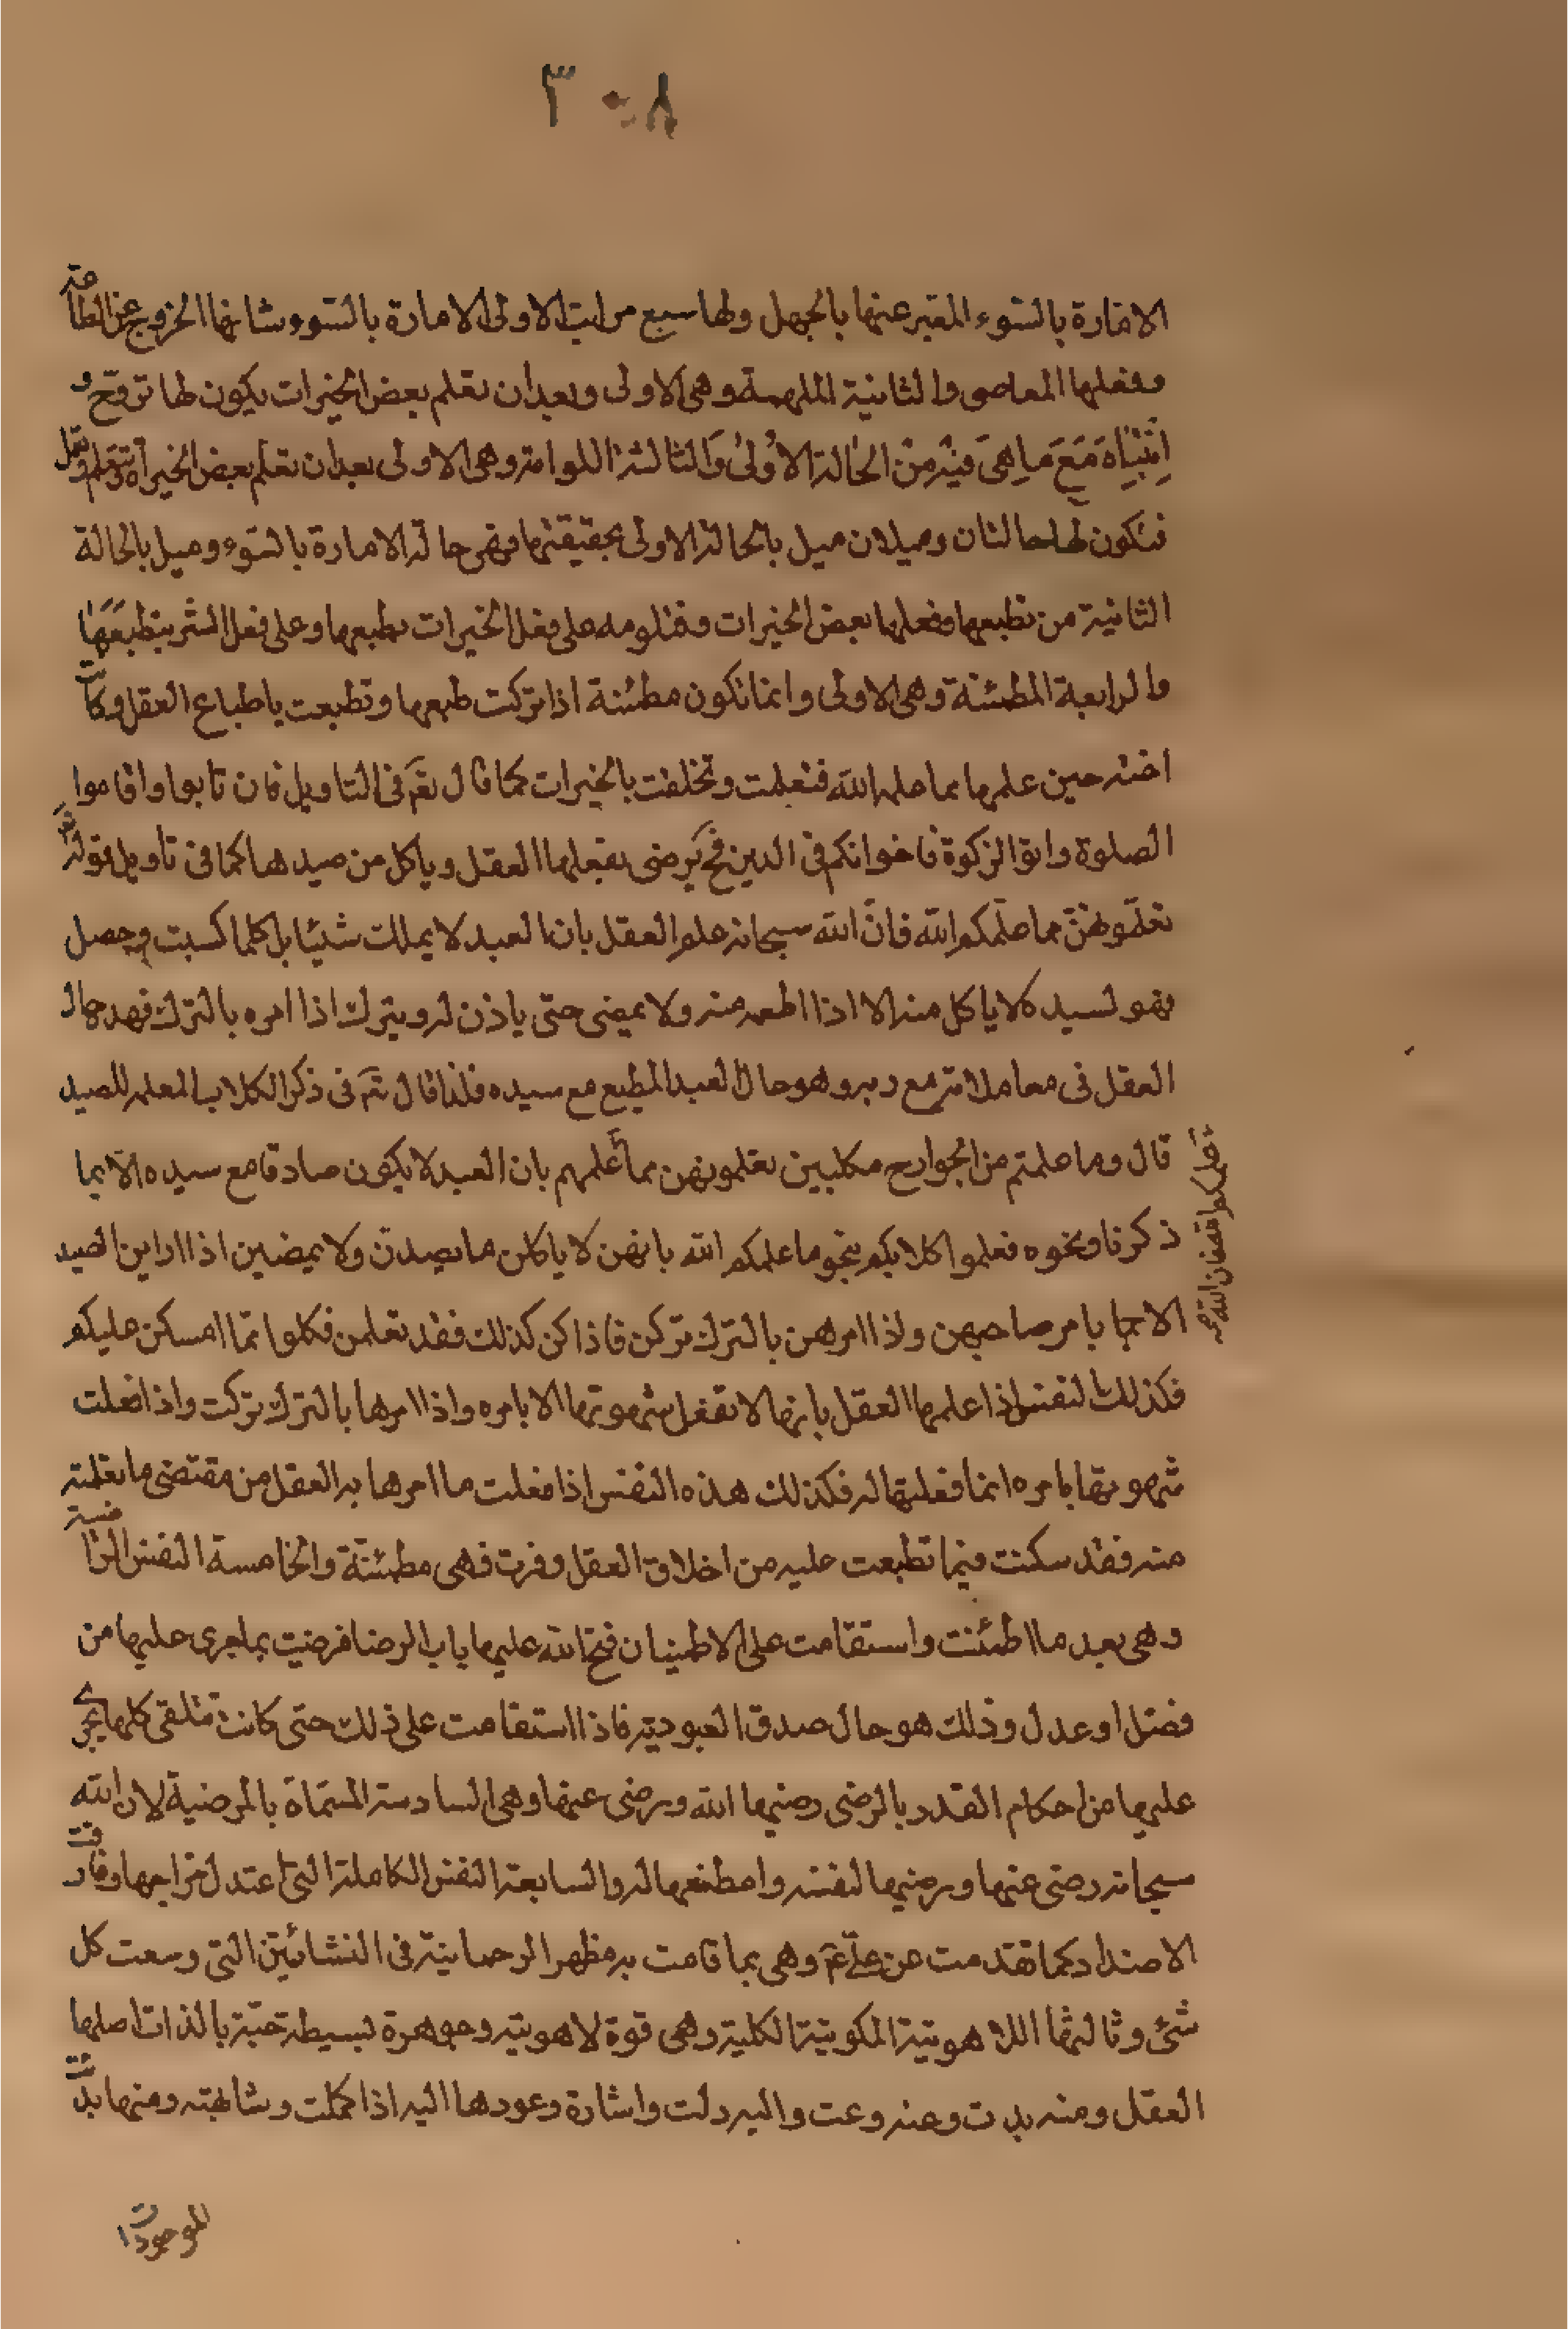 ٣٠٨
الامارة بالسّوء المعبّر عنها بالجهل ولها سبع مراتب الاولى الامارة بالسّوء وشانها الخروج عن الطاعة
وفعلها المعاصى والثانية الملهمة وهى الاولى وبعد ان تعلم بعض الخيرات يكون لها توقّح و
اِنْتِبْاه مَعَ ماهِىَ فيه مِنْ الحْالة الاُولىٰ وَالثالثة اللوامة وهى الاولى بعد ان تعلم بعض الخيرات
فتكون لها حالتان وميلان ميل بالحالة الاولى بحقيقتها فهى حالة الامارة بالسّوء وميل بالحالة
الثانية من تطبعها وفعلها بعض الخيرات فتلومه على فعل الخيرات بطبعها وعلى فعل الشّر بتطبّعها
والرابعة المطمئنة وهى الاولى وانما تكون مطمئنة اذا تركت طبعها وتطبعت باطباع العقل وكانت
اخته حين علمها مما علمه الله فتعلمت وتخلقت بالخيرات كما قال تعٓ فى التاويل فان تابوا واقاموا
الصلوة واتوا الزكوة فاخوانكم فى الدين فحٓ يرضى بفعلها العقل وياكل من صيدها كما فى تاويل قوله تعٓ
تعلّمونهنّ مما علّمكم الله فانّ الله سبحانه علم العقل بان العبد لا يملك شيئا بل كلما كسبت وحصل
فهو لسيده لا ياكل منه الا اذا اطعمه منه ولا يمضى حتى ياذن له ويترك اذا امره بالترك فهذه حال
العقل فى معاملاته مع ربه وهو حال العبد المطيع مع سيده فلذا قال تعٓ فى ذكر الكلاب المعلمة للصيد
قال وما علمتم من الجوارح مكلبين تعلمونهن مما علمهم بان العبد لا يكون صادقا مع سيده الّا بما
ذكرنا ونحوه فعلموا كلابكم بنحو ما علمكم الله بانهن لا ياكلن ما يصدن ولا يمضين اذا اراين الصيد
الا بامر صاحبهن واذا امرهن بالترك تركن فاذا كن كذلك فقد تعلمن فكلوا ممّا امسكن عليكم
فكذلك النفس اذا علمها العقل بانها لا تفعل شهوتها الا بامره واذا امرها بالترك تركت واذا فعلت
شهوتها بامره انما فعلتها له فكذلك هذه النفس اذا فعلت ما امرها به العقل من مقتضى ما تعلمته
منه فقد سكنت فيما تطبعت عليه من اخلاق العقل وقرت فهى مطمئنّة والخامسة النفس الراضية
وهى بعد ما اطمئنت واستقامت على الاطمينان فتح الله عليها باب الرضا فرضيت بما جرى عليها من
فضل او عدل وذلك هو حال صدق العبوديّة فاذا استقامت على ذلك حتى كانت تتلقى كلما يجرى
عليها من احكام القدر بالرضى رضيها الله ورضى عنها وهى السادسة المسّماة بالمرضية لان الله
سبحانه رضى عنها ورضيها لنفسه واصطنعها له والسابعة النفس الكاملة التى اعتدل مزاجها وفارقت
الاضداد كما تقدمت عن علّى عٓ وهى بما قامت به مظهر الرحمانية فى النشأتين التى وسعت كل
شئ وثالثها اللاهوتية الملكوتية الكلية وهى قوة لاهوتية وجوهرة بسيطة حيّة بالذات اصلها
العقل ومنه بدت وعنه وعت واليه دلت واشارة وعودها اليه اذا كملت وشابهته ومنها بدئت
الموجودات